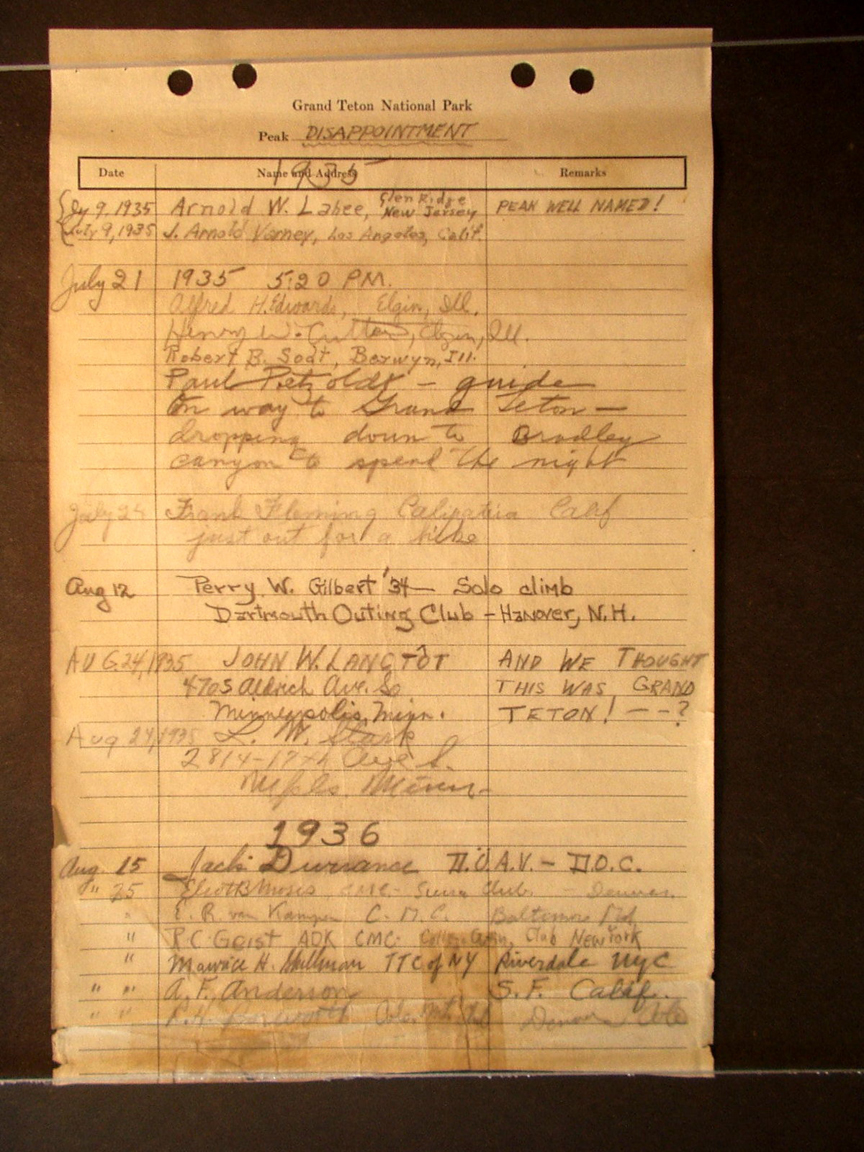 Grand Teton National Park
Peak DISAPPOINTMENT
Date Name and Address Remarks
1935
Jy 9, 1935 Arnold W. Labee, Glen Ridge New Jersey PEAK WELL NAMED!
July 9, 1935 J. Arnold Varney, Los Angeles, Calif.
July 21 1935 5:20 P.M.
Alfred H. Edwards, Elgin, Ill.
Henry W. Elgin, Ill.
Robert B. Sodt, Berwyn, Ill.
Paul Petzoldt - guide
On way to Grand Teton -
dropping down to Bradley
canyon to spend the night
July Frank Fleming Calipatria Calif
just out for a hike
Aug 12 Perry W. Gilbert '34 - Solo climb
Dartmouth Outing Club - Hanover, N.H.
AUG. 24, 1935 JOHN W. LANGTOT AND WE THOUGHT
4705 Aldrich Ave. So THIS WAS GRAND
Minneapolis, Minn. TETON! - - ?
Aug 24, 1935 L. W. Stark
2814-17th Ave S.
Mpls Minn.
1936
Aug. 15 Jack Durrance D.O.C.
" 25 CMC - Sierra Club. - Denver.
" E. R. van Kampen C.M.C. Baltimore Md
" P.C. Geist ADK CMC Club New York
" Maurice H. TTC of NY Riverdale NYC
" " A. F. Anderson S.F. Calif.
" " Colo. Mt. Denver Colo